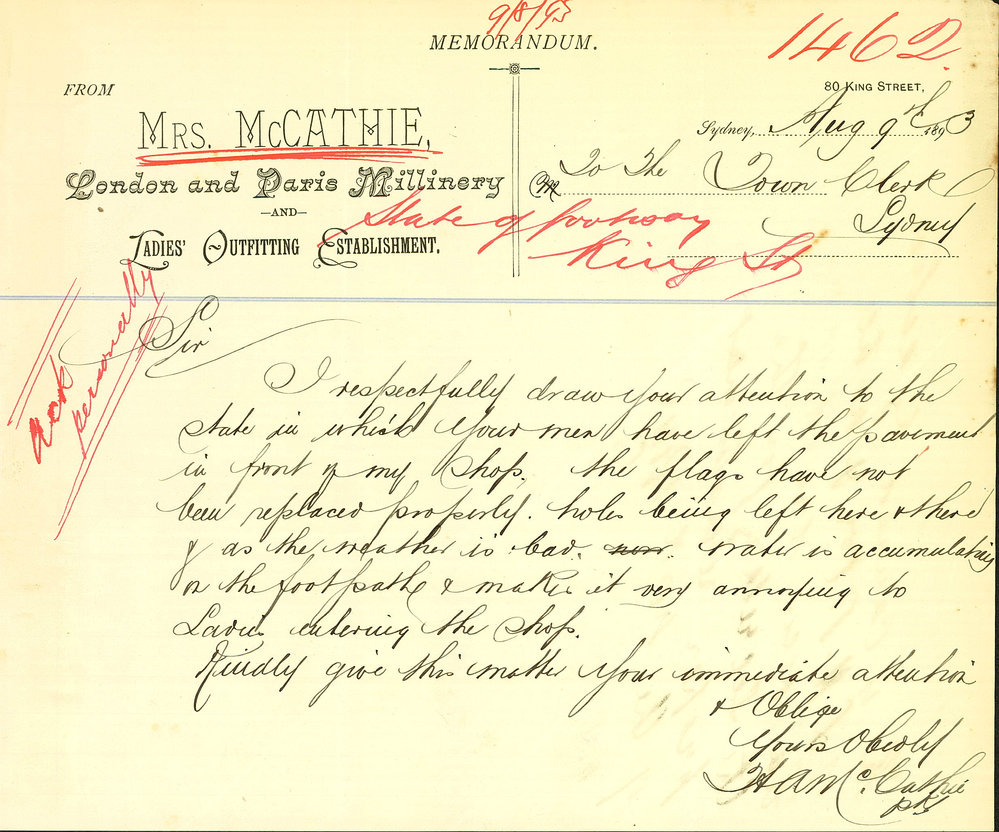 9/8/93
MEMORANDUM.
1462.
FROM
80 KING STREET,
MRS. McCATHIE,
Sydney, Aug 9th 1893
London and Paris Millinery
To The Town Clerk
—AND—
Sydney
State of footway
LADIES' OUTFITTING ESTABLISHMENT.
King St
Ack
personally
Sir
I respectfully draw your attention to the
state in which your men have left the pavement
in front of my shop. the flags have not
been replaced properly. holes being left here & there
& as the weather is bad. now. water is accumulating
on the footpath & makes it very annoying to
Ladies entering the shop.
Kindly give this matter your immediate attention
& Oblige
Yours Obedly
HA McCathie